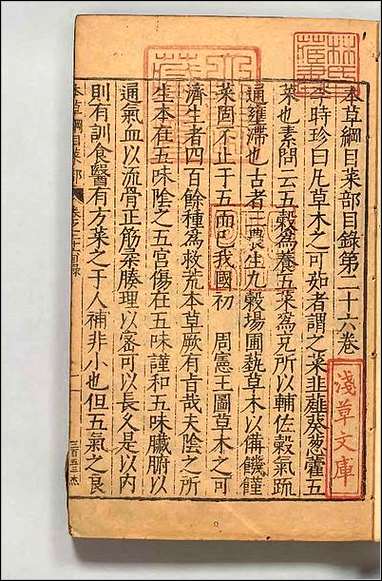 本草綱目菜部目錄第二十六卷
李時珍曰凡草木之可茹者謂之菜韭薤葵葱藿五
菜也素問云五穀為養五菜為充所以輔佐穀氣疏
通壅滯也古者三農生九穀場圃蓺草木以備饑饉
菜固不止于五而已我國初 周憲王圖草木之可
濟生者四百餘種為救荒本草厥有旨哉夫陰之所
生本在五味陰之五宮傷在五味謹和五味臟腑以
通氣血以流骨正筋柔腠理以密可以長久是以內
則有訓食醫有方菜之于人補非小也但五氣之良
本草綱目菜部
淺草文庫